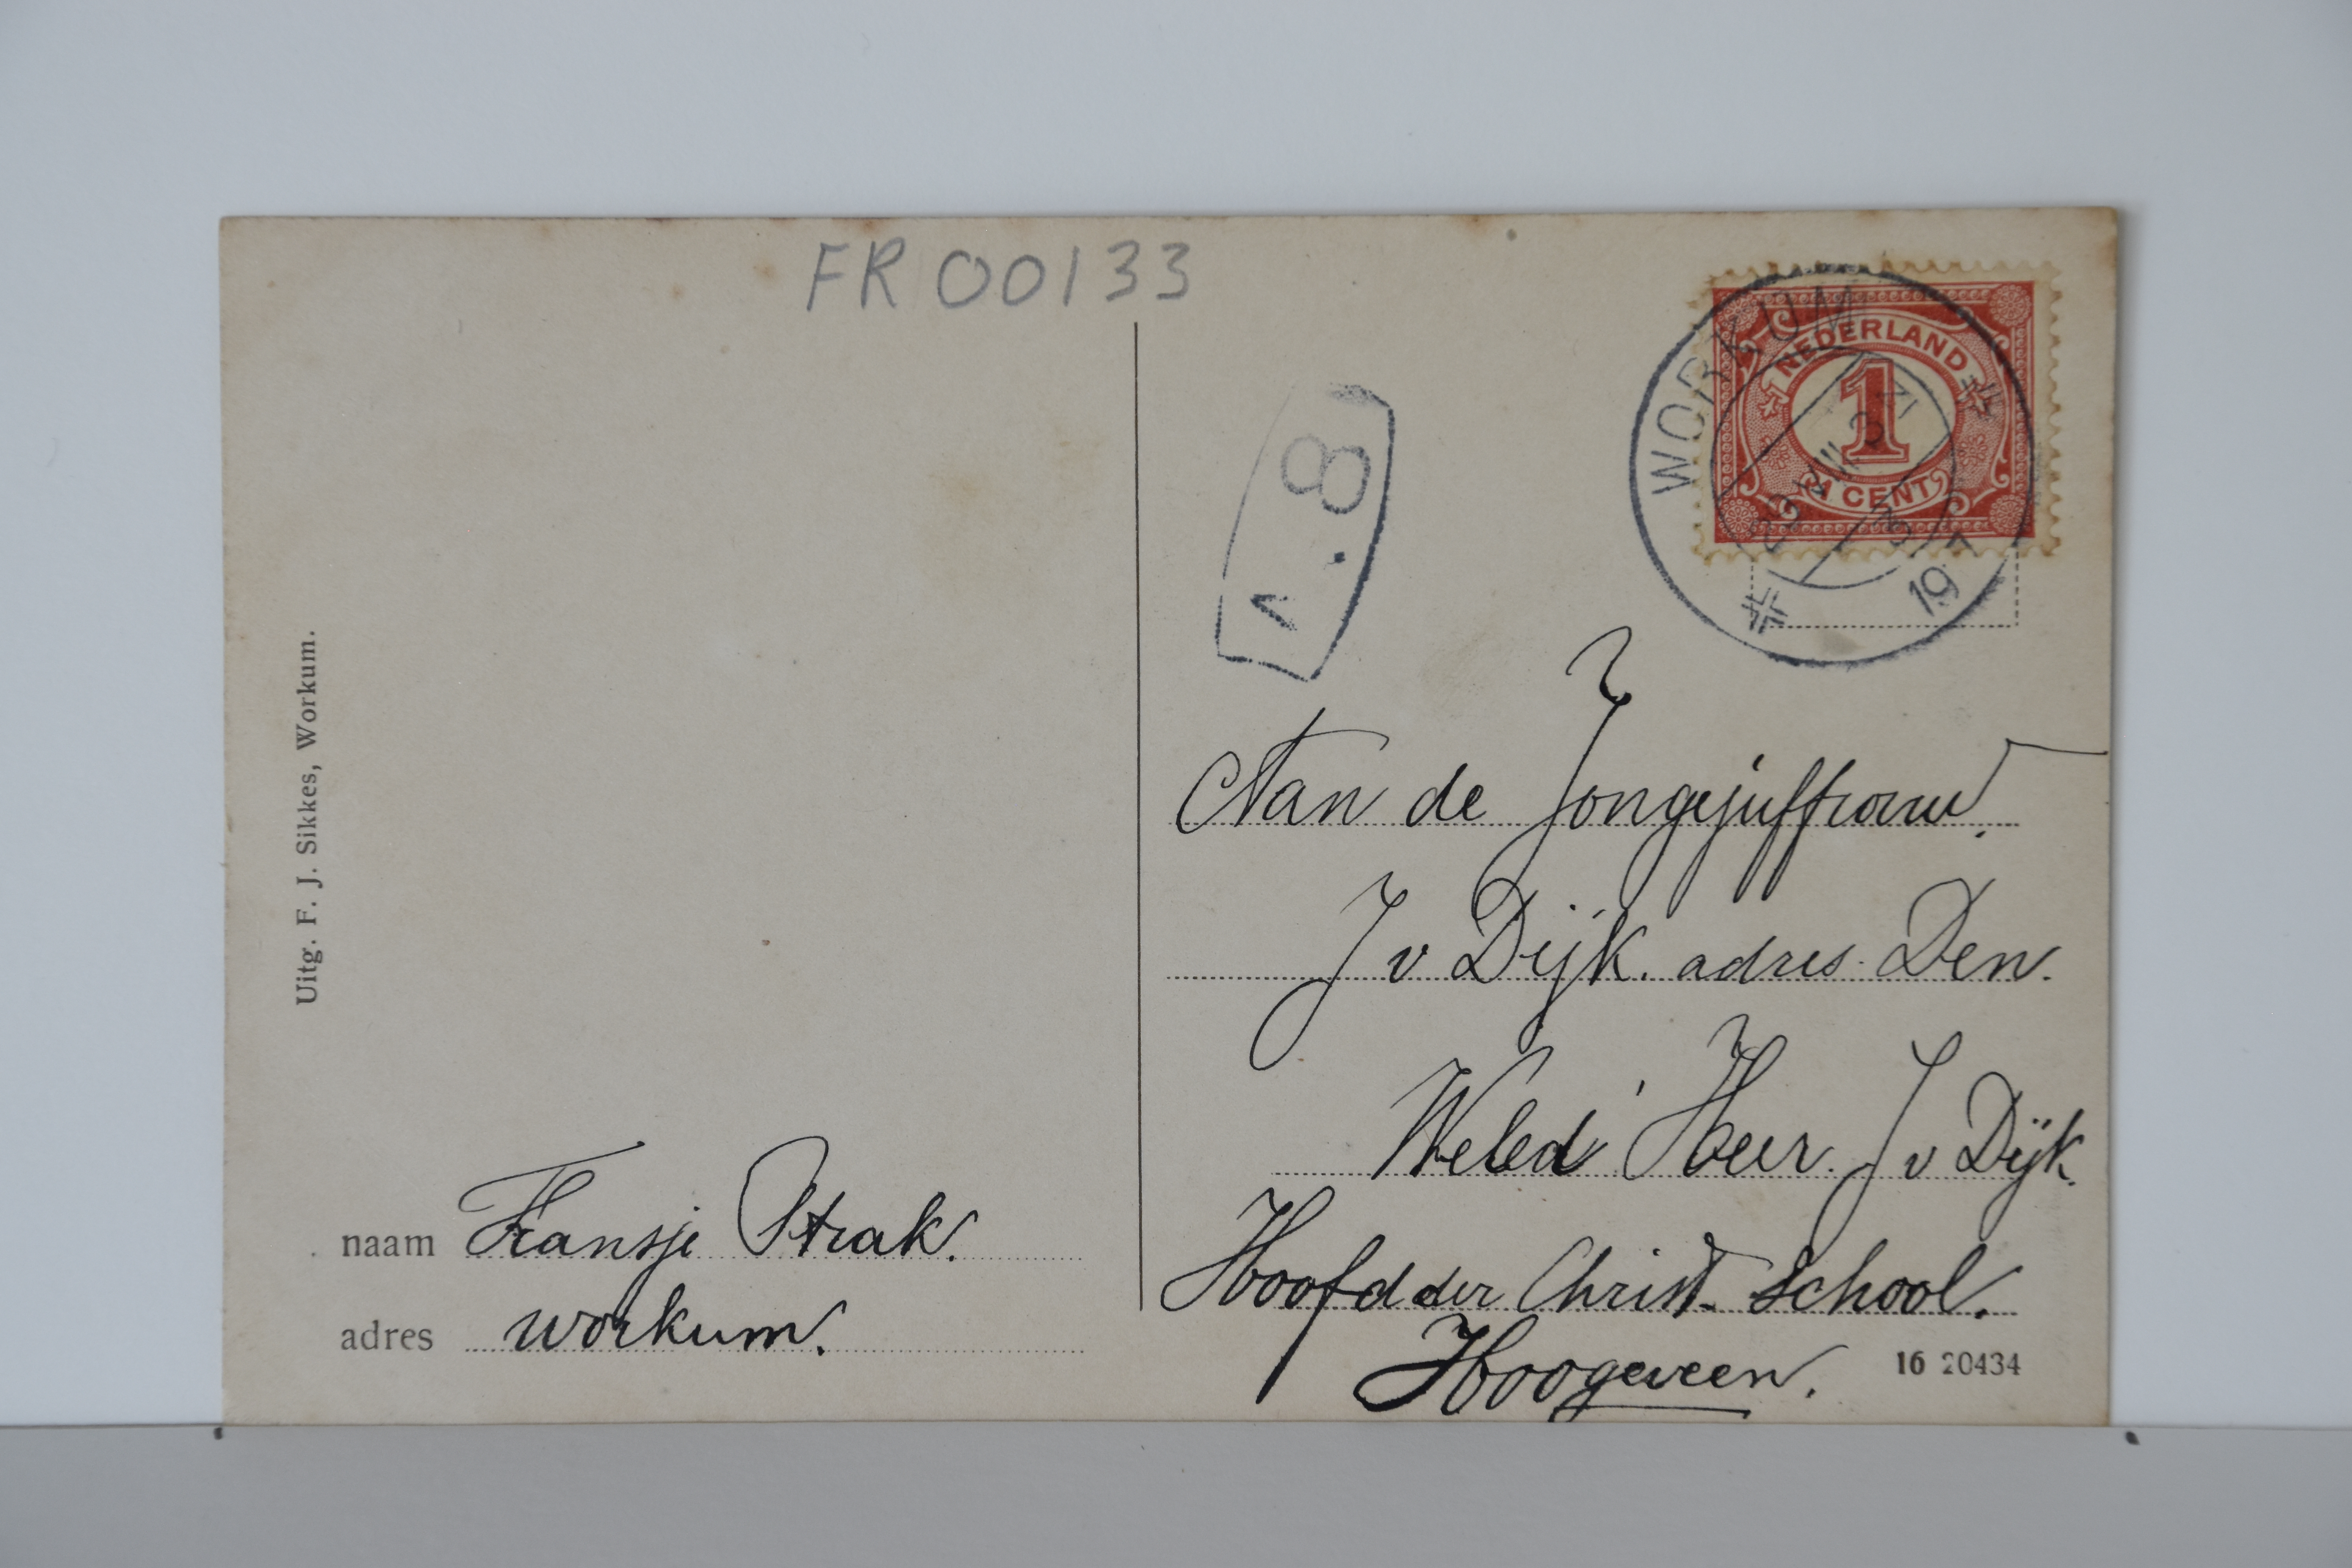 FR 00133
NEDERLAND
1
1 CENT
WORKUM
19
A.8
Aan de Jongejuffrouw.
J v Dijk. adres Den.
Weled Heer. J v Dijk.
Hoofd der Christ. School.
Hoogeveen.
16 20434
Uitg. F. J. Sikkes, Workum.
naam Fransje Strak.
adres workum.